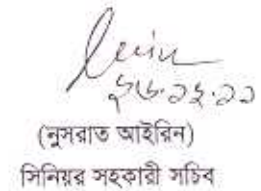 ২৬.১২.১১
(নুসরাত আইরিন)
সিনিয়র সহকারী সচিব